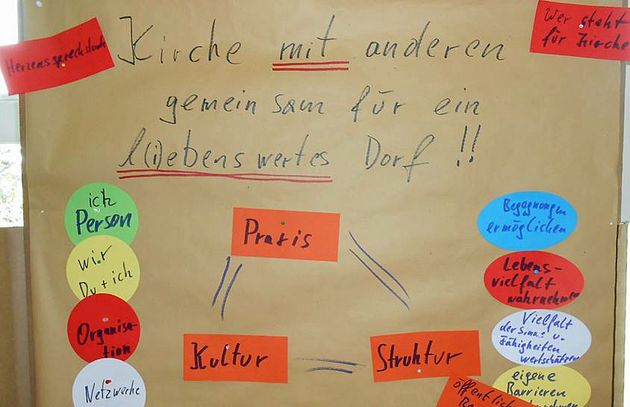 Herzenssprechstunde
Wer steht
für Kirche
Kirche mit anderen
gemeinsam für ein
l(i)ebenswertes Dorf!!
ich
Person
wir
Du + ich
Organisa-
tion
Netzwerke
Praxis
Kultur
Struktur
Begegnungen
ermöglichen
Lebens-
vielfalt
wahrnehmen
Vielfalt
der Sinne u.
Fähigkeiten
wertschätzen
eigene
Barrieren
öffentlich